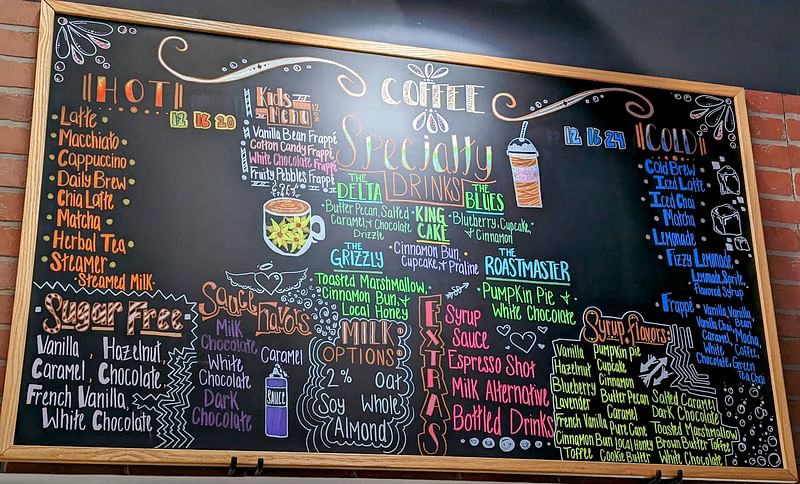 HOT
12 16 20
Latte
Macchiato
Cappuccino
Daily Brew
Chia Latte
Matcha
Herbal Tea
Steamer
Steamed Milk
Kids Menu
12 oz
Vanilla Bean Frappé
Cotton Candy Frappé
White Chocolate Frappé
Fruity Pebbles Frappé
COFFEE
Specialty
DRINKS
THE DELTA
Butter Pecan, Salted
Caramel, + Chocolate
Drizzle
KING CAKE
Cinnamon Bun,
Cupcake, + Praline
THE BLUES
Blueberry, Cupcake,
+ Cinnamon
THE GRIZZLY
Toasted Marshmallow,
Cinnamon Bun, +
Local Honey
THE ROASTMASTER
Pumpkin Pie +
White Chocolate
12 16 24
COLD
Cold Brew
Iced Latte
Iced Chai
Matcha
Lemonade
Fizzy Lemonade
Lemonade, Sprite,
Flavored Syrup
Frappé
Vanilla Bean,
Vanilla Chai, Mocha,
Caramel, Coffee,
White Chocolate, Green
Tea & Chai
Sugar Free
Vanilla, Hazelnut,
Caramel, Chocolate,
French Vanilla,
White Chocolate
Sauce Flavors
Milk Chocolate
White Chocolate
Dark Chocolate
Caramel
SAUCE
MILK OPTIONS:
2% Oat
Soy Whole
Almond
EXTRAS
Syrup
Sauce
Espresso Shot
Milk Alternative
Bottled Drinks
Syrup Flavors:
Vanilla Pumpkin pie
Hazelnut Cupcake
Blueberry Cinnamon
Lavender Butter Pecan Salted Caramel
Irish Cream Caramel Dark Chocolate
French Vanilla Pure Cane Toasted Marshmallow
Cinnamon Bun Local Honey Brown Butter Toffee
Toffee Cookie Butter White Chocolate